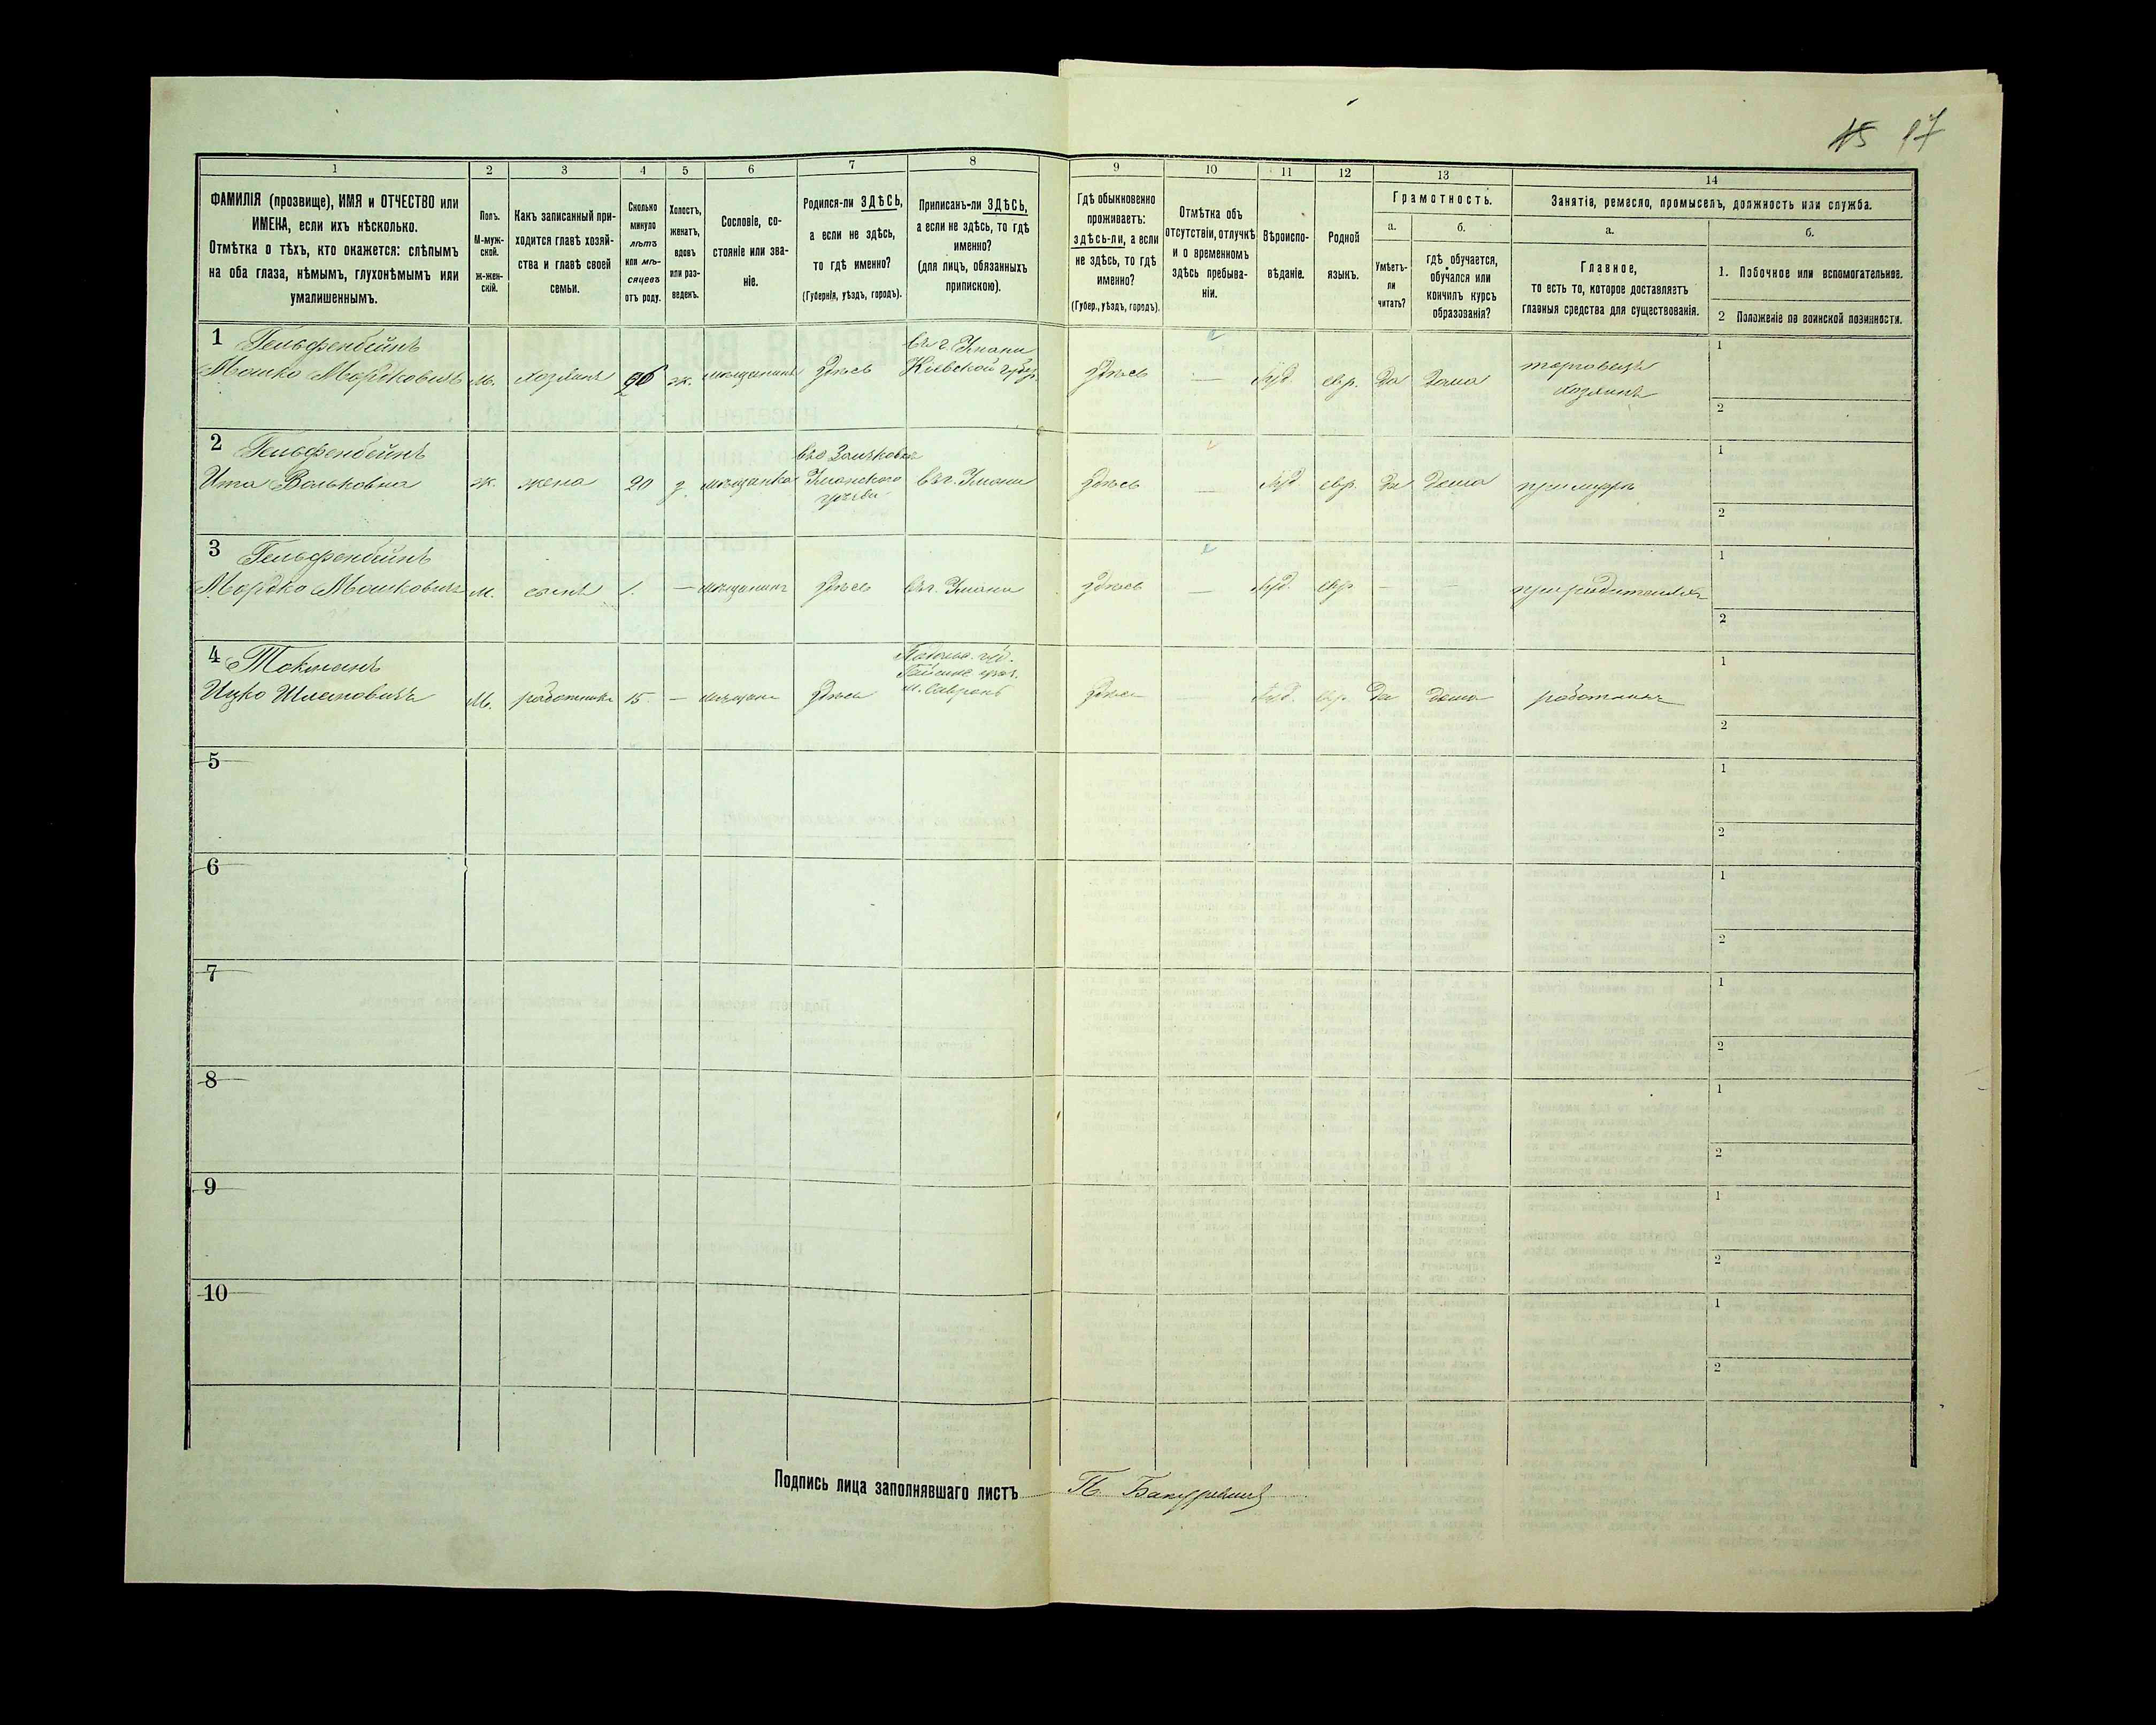 17
1 2 3 4 5 6 7 8 9 10 11 12 13 14
ФАМИЛІЯ (прозвище), ИМЯ и ОТЧЕСТВО или
ИМЕНА, если ихъ нѣсколько.
Отмѣтка о тѣхъ, кто окажется: слѣпымъ
на оба глаза, нѣмымъ, глухонѣмымъ или
умалишеннымъ.
Полъ.
М-муж-
ской.
ж-жен-
скій.
Какъ записанный при-
ходится главѣ хозяй-
ства и главѣ своей
семьи.
Сколько
минуло
лѣтъ
или мѣ-
сяцевъ
отъ роду.
Холостъ,
женатъ,
вдовъ
или раз-
веденъ.
Сословіе, со-
стояніе или зва-
ніе.
Родился-ли ЗДѢСЬ,
а если не здѣсь,
то гдѣ именно?
(Губернія, уѣздъ, городъ).
Приписанъ-ли ЗДѢСЬ,
а если не здѣсь, то гдѣ
именно?
(для лицъ, обязанныхъ
припискою).
Гдѣ обыкновенно
проживаетъ:
здѣсь-ли, а если
не здѣсь, то гдѣ
именно?
(Губер., уѣздъ, городъ).
Отмѣтка объ
отсутствіи, отлучкѣ
и о временномъ
здѣсь пребыва-
ніи.
Вѣроиспо-
вѣданіе.
Родной
языкъ.
Грамотность.
а.
Умѣетъ-
ли
читать?
б.
гдѣ обучается,
обучался или
кончилъ курсъ
образованія?
Занятія, ремесло, промыселъ, должность или служба.
а.
Главное,
то есть то, которое доставляетъ
главныя средства для существованія.
б.
1. Побочное или вспомогательное.
2 Положеніе по воинской повинности.
1 Гельфенбейнъ
Мошко Мордковичъ м. хозяинъ ж. мѣщанинъ здѣсь
въ г. Умани
Кіевской губ.
здѣсь — Іуд. евр. да дома
торговецъ
хозяинъ
1
2
2 Гельфенбейнъ
Ита Вольковна ж. жена 20 з. мѣщанка
Уманского
въ г. Умани здѣсь — Іуд. евр. да дома при мужѣ
1
2
3 Гельфенбейнъ
Мордко Мошковичъ м. сынъ 1. — мѣщанинъ здѣсь въ г. Умани здѣсь — Іуд. евр. — — при родителяхъ
1
2
4 Токманъ
Ицко Шлемовичъ м. работникъ 15 — мѣщан здѣсь
Подольс. губ.
м. Савранъ
здѣсь — Іуд. евр. да дома работникъ
1
2
5
1
2
6
1
2
7
1
2
8
1
2
9
1
2
10
1
2
Подпись лица заполнявшаго листъ